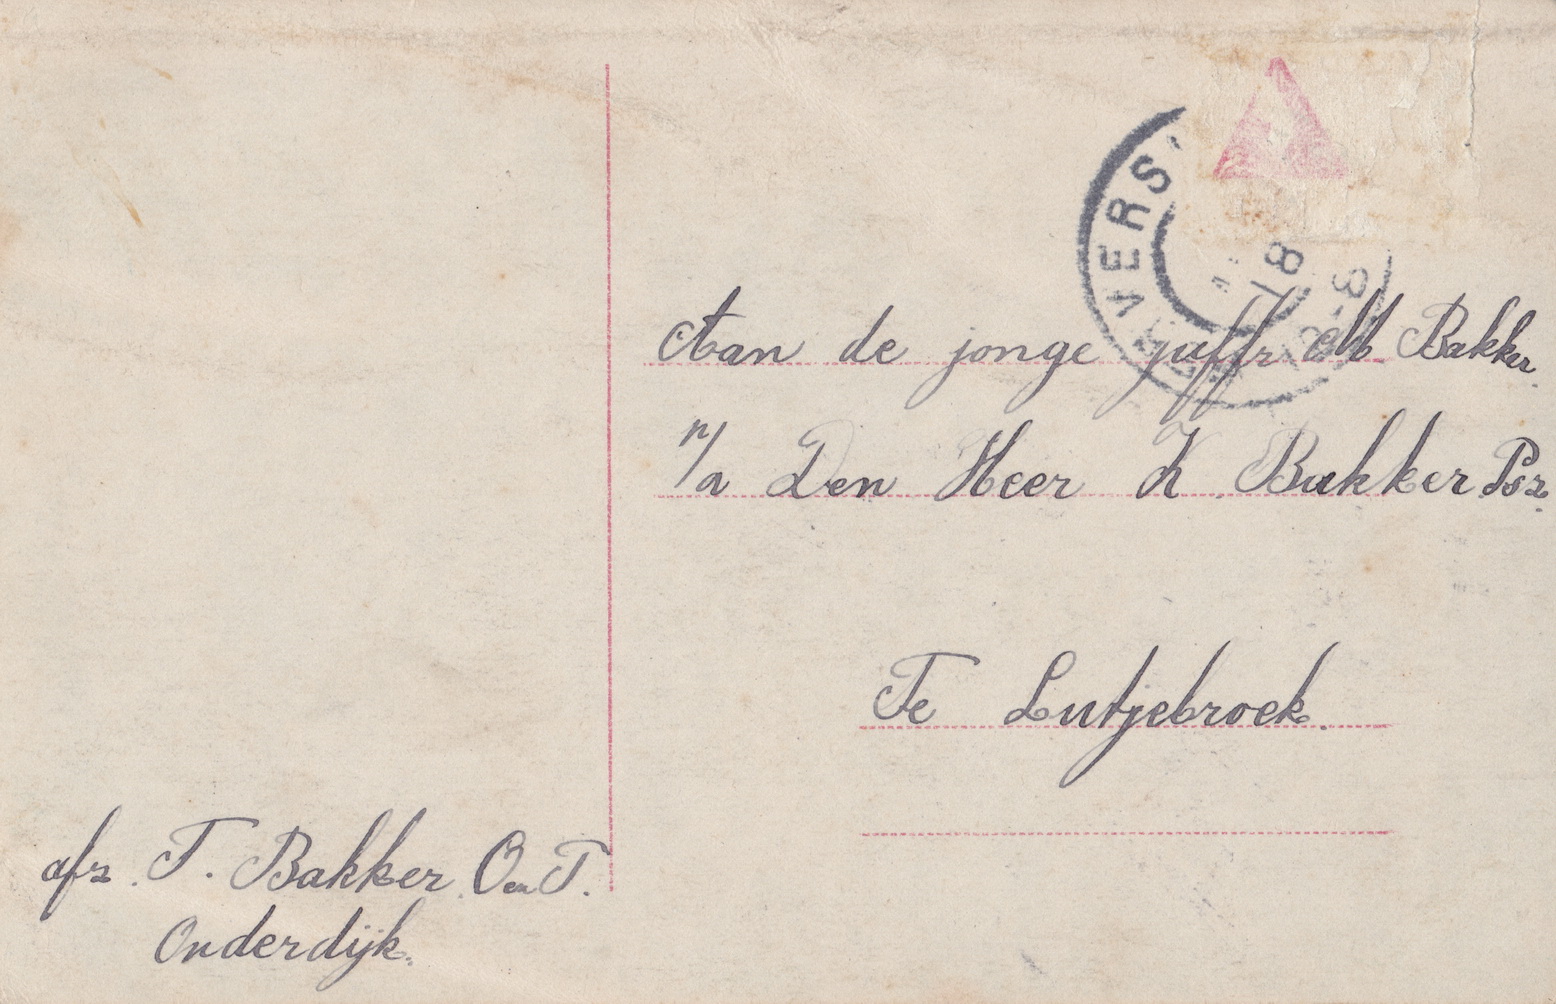 VERS
18
8
Aan de jonge juffr M Bakker
p/a Den Heer K Bakker Psz.
Te Lutjebroek.
afz. T. Bakker O en T.
Onderdijk.